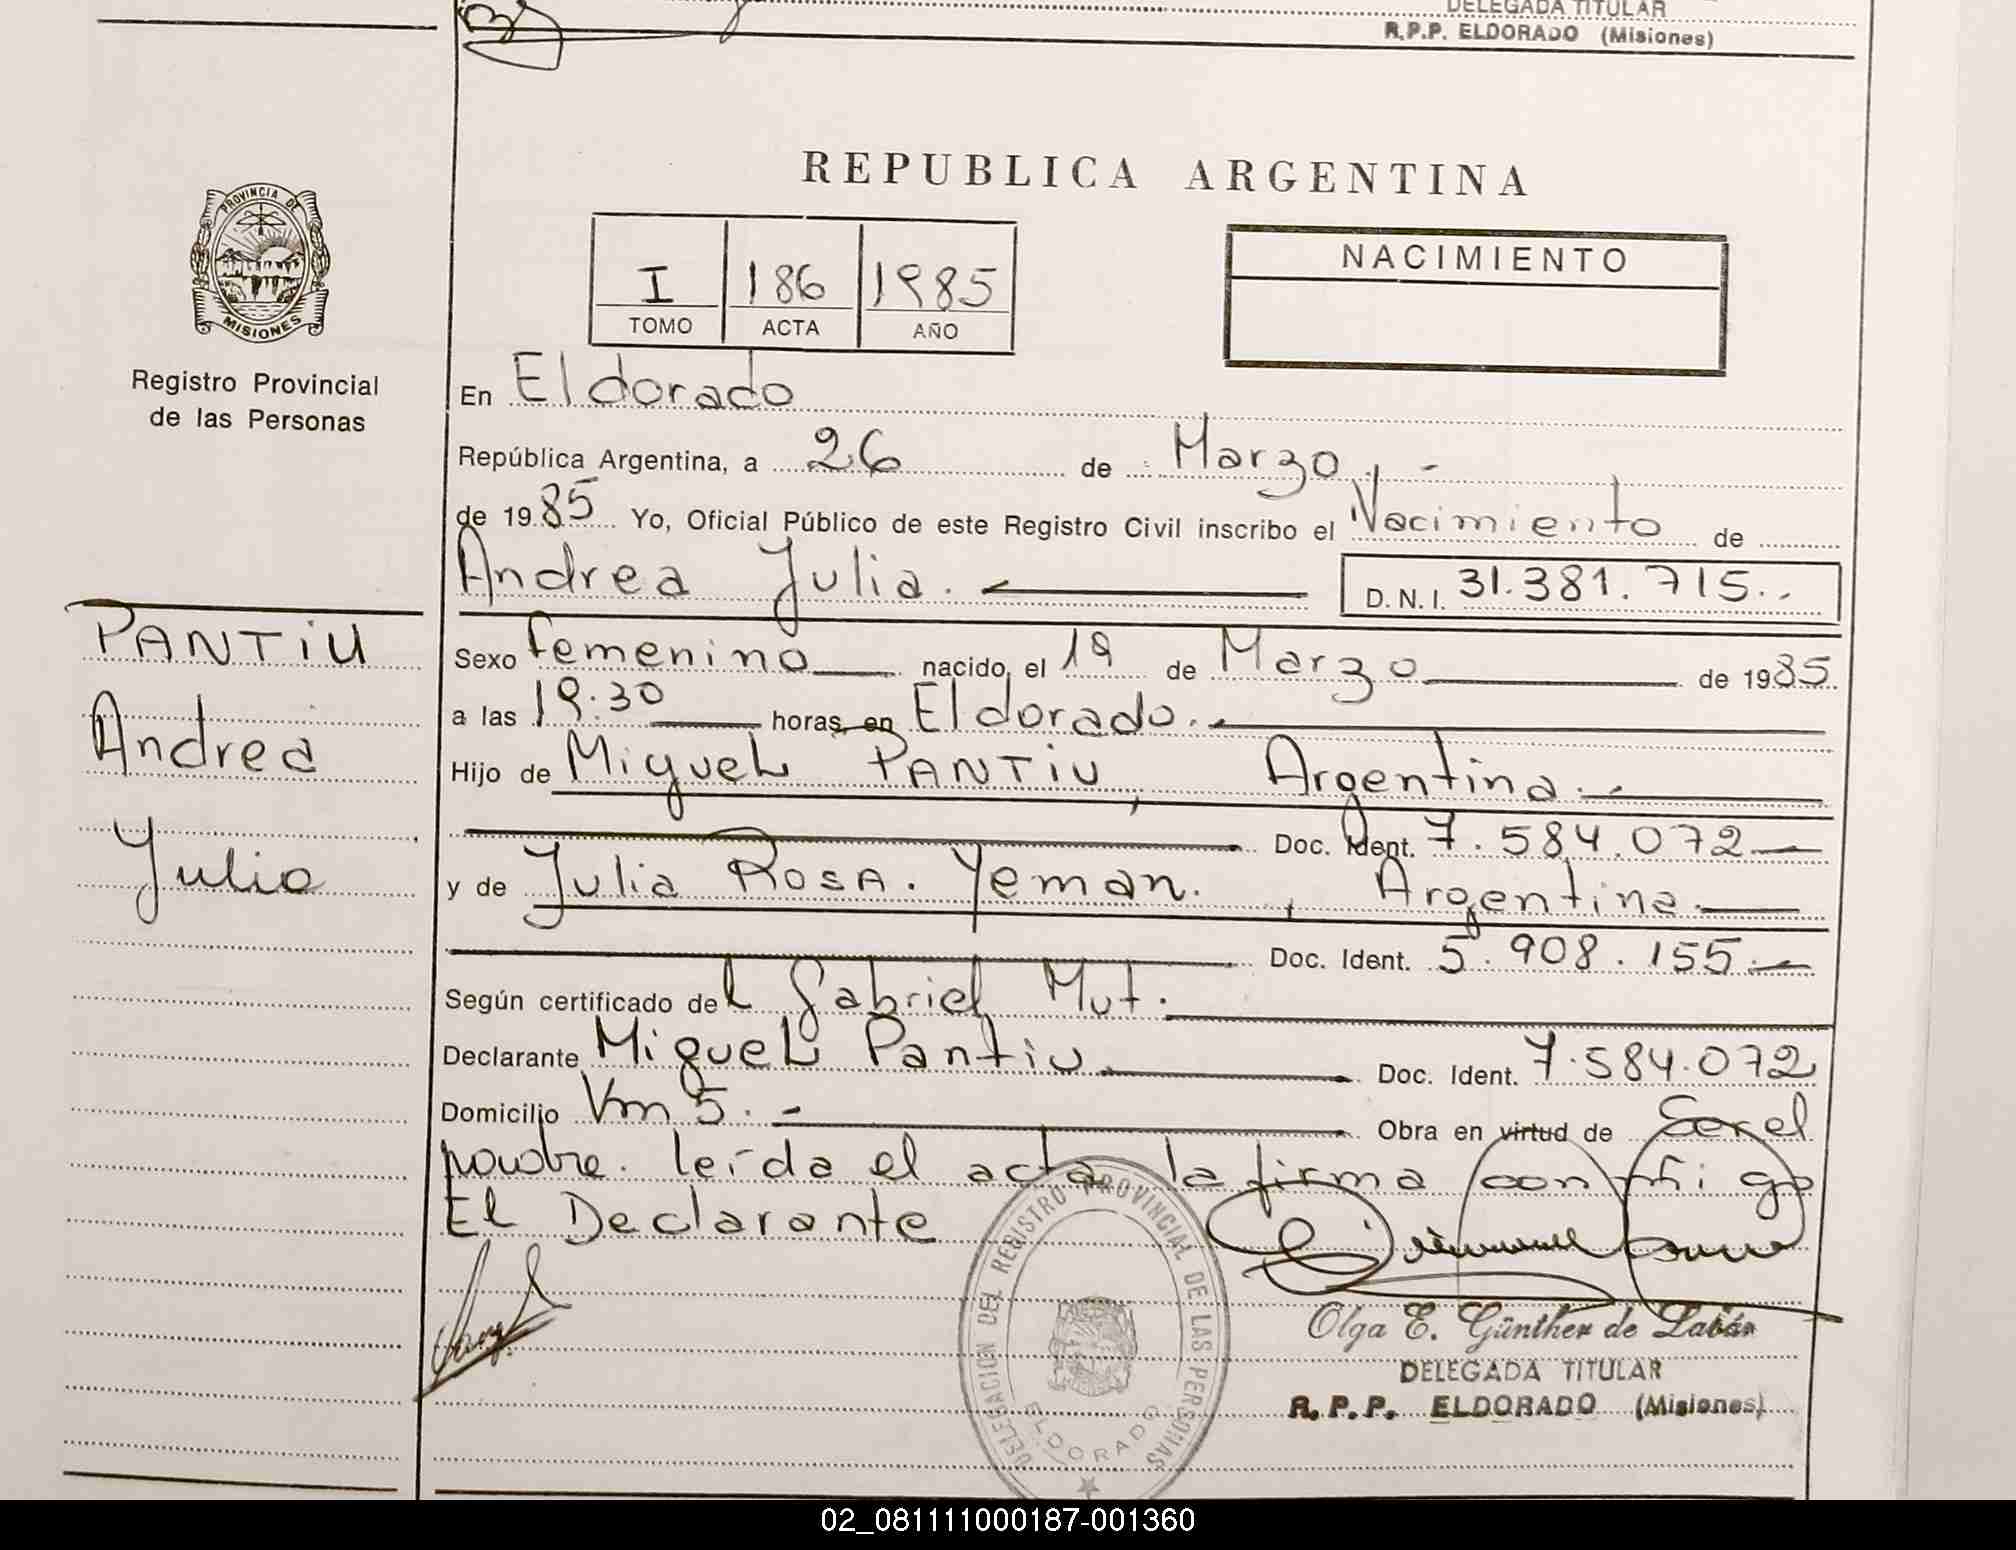 DELEGADA TITULAR
R.P.P. ELDORADO (Misiones)
REPUBLICA ARGENTINA
PROVINCIA DE
MISIONES
Registro Provincial
de las Personas
I 186 1985
TOMO ACTA AÑO
NACIMIENTO
En Eldorado
República Argentina, a 26 de Marzo. -
de 1985 Yo, Oficial Público de este Registro Civil inscribo el Nacimiento de
Andrea Julia.
D.N.I. 31.381.715.-
PANTIU
Andrea
Julia
Sexo femenino nacido, el 19 de Marzo de 1985
a las 19.30 horas en Eldorado.
Hijo de Miguel PANTIU, Argentina.-
Doc. Ident. 7.584.072
y de Julia ROSA. Yeman., Argentina.
Doc. Ident. 5.908.155.
Según certificado del Gabriel Mut.
Declarante Miguel Pantiu Doc. Ident. 7.584.072
Domicilio Vm 5. - Obra en virtud de Ser el
padre. leída el acta la firma conmigo
El Declarante
DELEGACION DEL REGISTRO PROVINCIAL DE LAS PERSONAS
ELDORADO
Olga E. Günther de Labán
DELEGADA TITULAR
R.P.P. ELDORADO (Misiones)
02_081111000187-001360